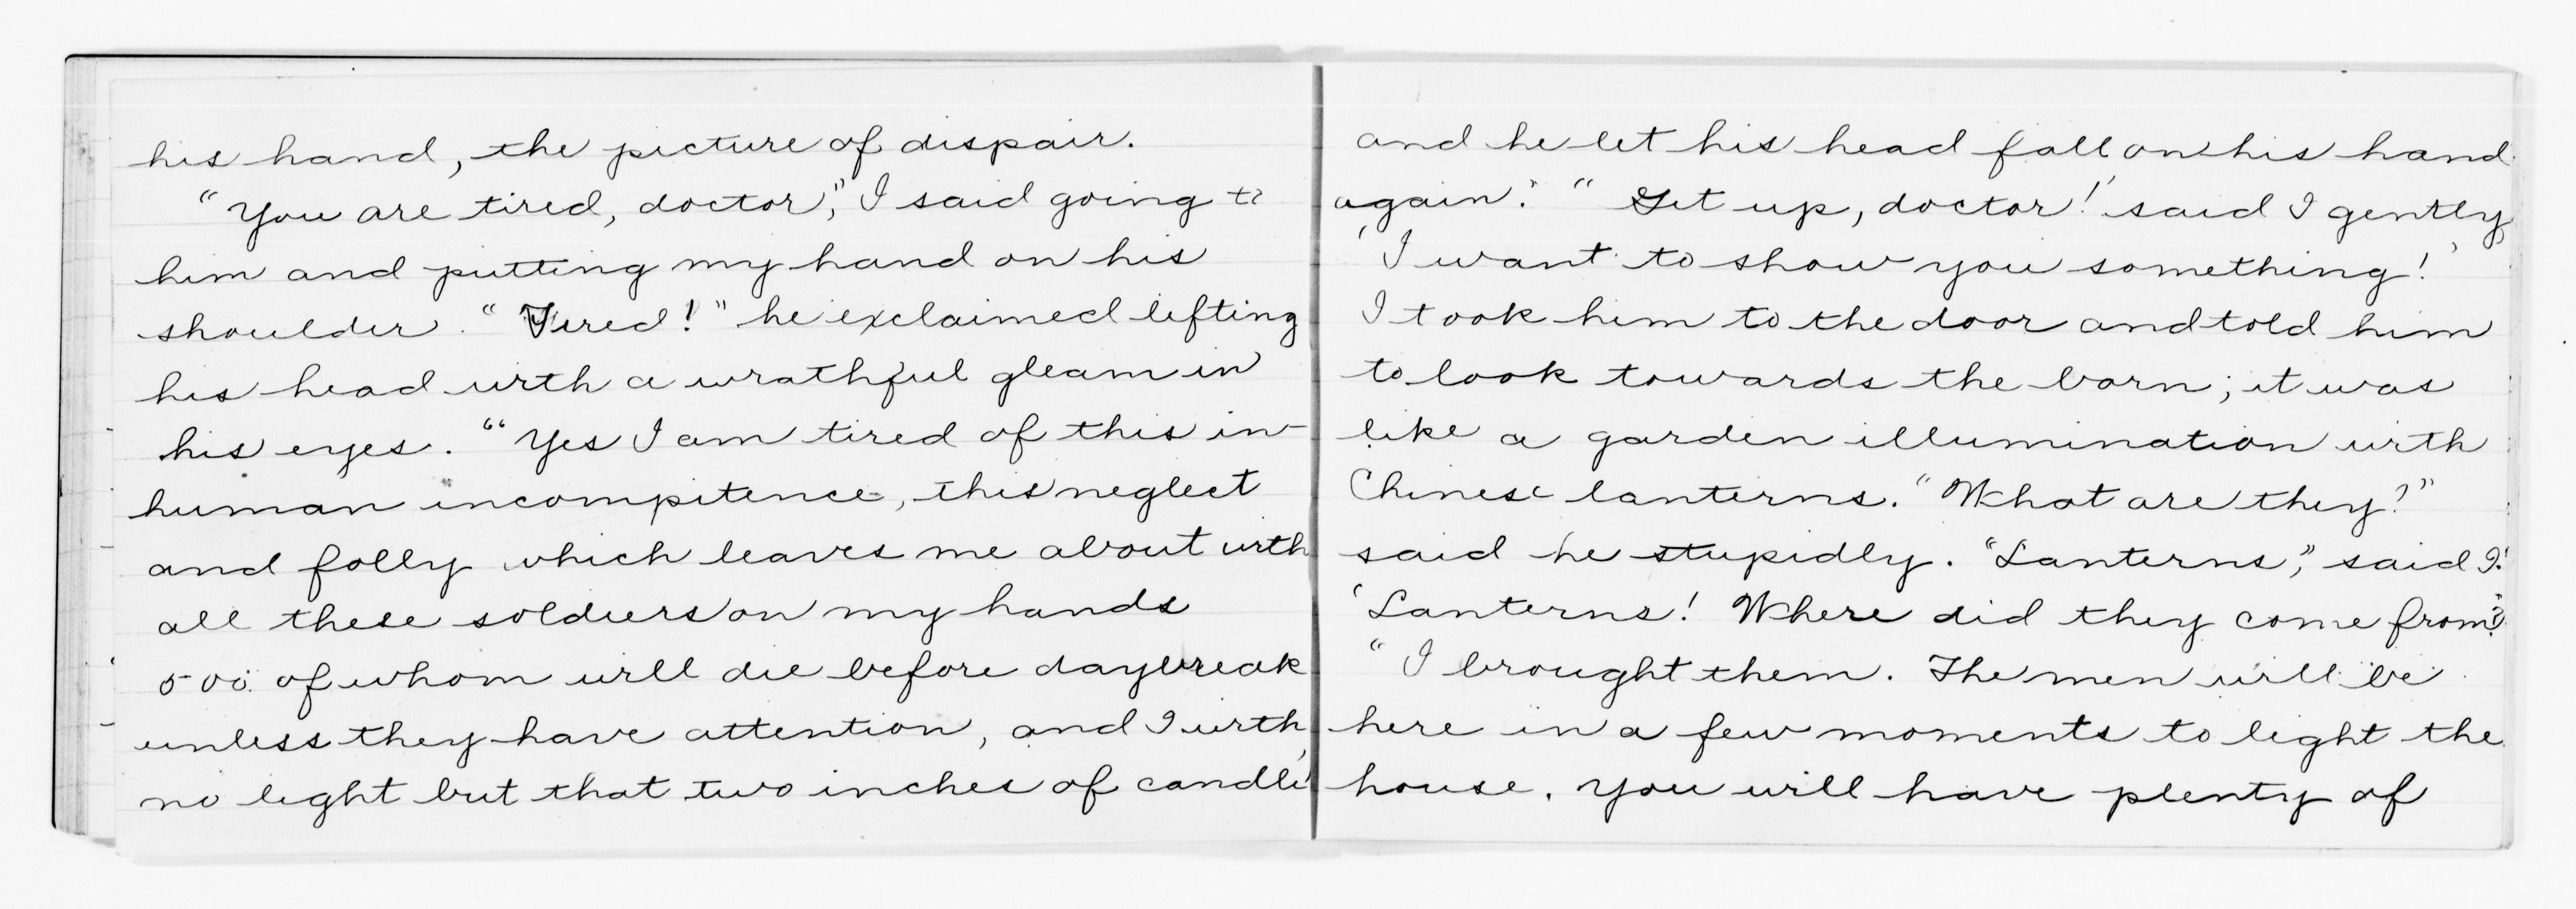 his hand, the picture of dispair.
"You are tired, doctor," I said going to
him and putting my hand on his
shoulder. "Tired!" he exclaimed lifting
his head with a wrathful gleam in
his eyes. "Yes I am tired of this in-
human incompitence, this neglect
and folly which leaves me about with
all these soldiers on my hands
500 of whom will die before daybreak
unless they have attention, and I with
no light but that two inches of candle'
and he let his head fall on his hand
again." "Get up, doctor!' said I gently
'I want to show you something!'
I took him to the door and told him
to look towards the barn; it was
like a garden illumination with
Chinese lanterns. "What are they?"
said he stupidly. "Lanterns," said I.'
'Lanterns! Where did they come from?'
"I brought them. The men will be
here in a few moments to light the
house. You will have plenty of